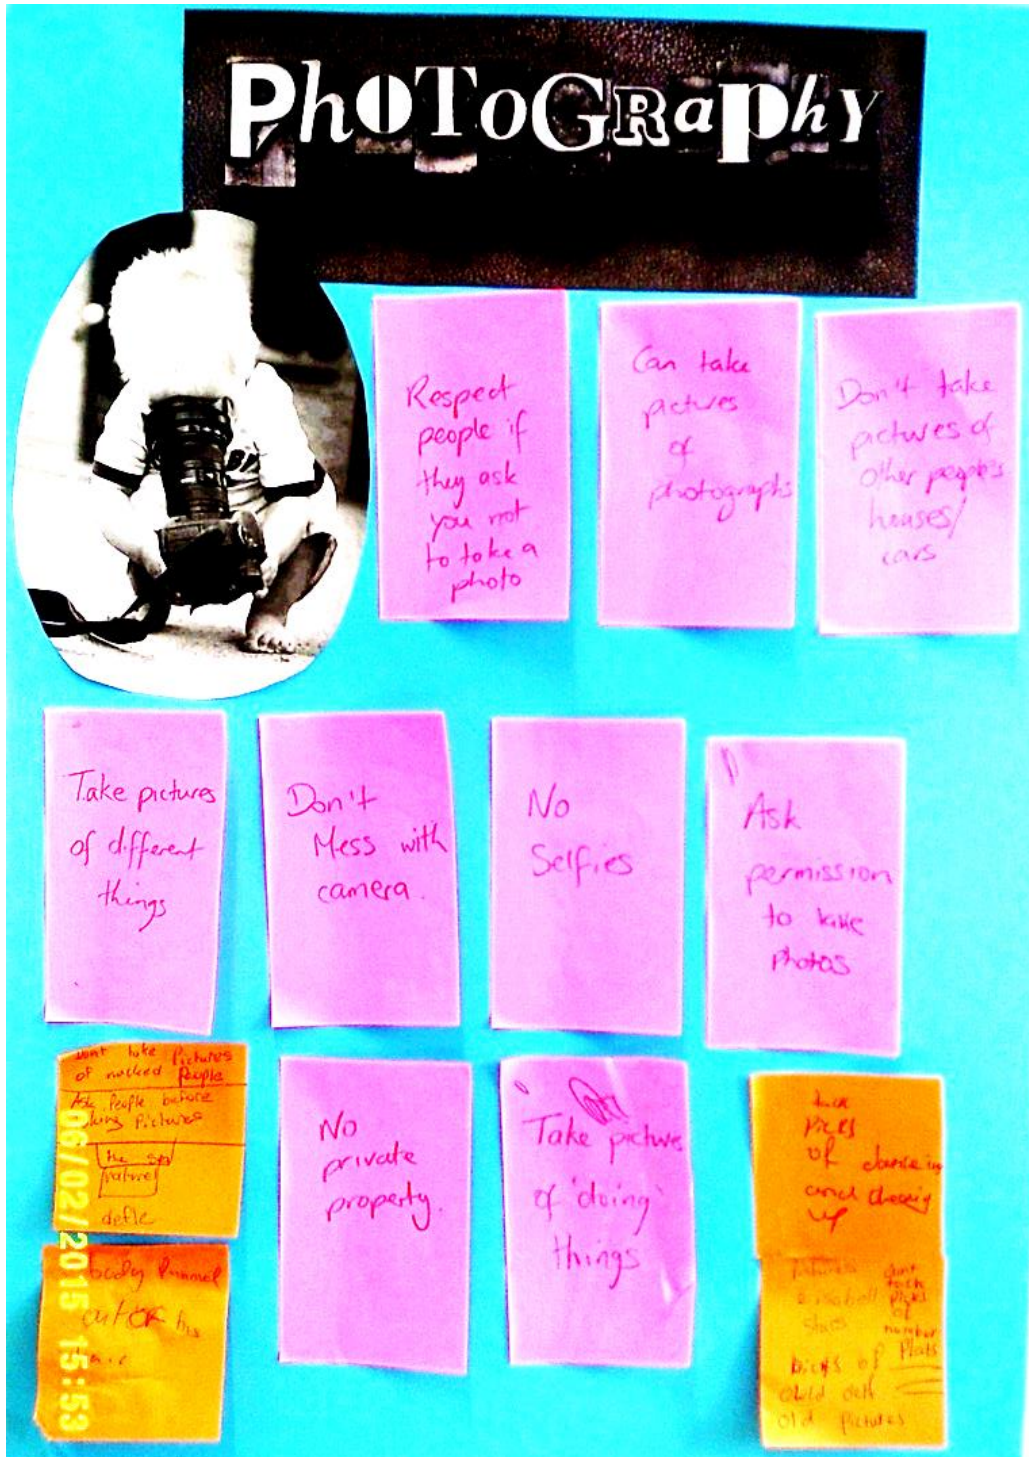 PhOToGRaphY
Respect
people if
they ask
you not
to take a
photo
Can take
pictures
of
photographs
Don't take
pictures of
other people's
houses/
cars
Take pictures
of different
things
Don't
Mess with
camera.
No
Selfies
Ask
permission
to take
photos
Dont take Pictures
of nacked People
Ask People before
Pictures
the
06/02/2015 15:53
body
out OF his
No
private
property.
Take picture
of 'doing'
things
Picks
of
and
up
dont
Picks
of
number
Plats
Picks of
old Pictures